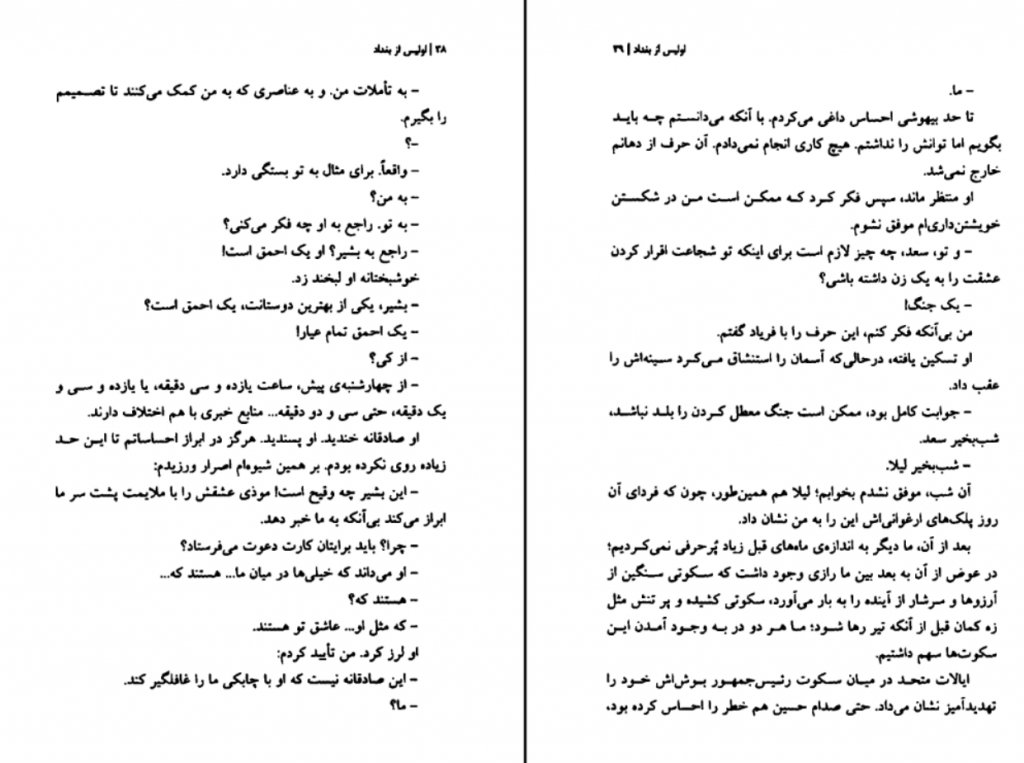 ۳۸ | اولیس از بغداد
– به تأملات من. و به عناصری که به من کمک می‌کنند تا تصمیمم
را بگیرم.
–؟
– واقعاً. برای مثال به تو بستگی دارد.
– به من؟
– به تو. راجع به او چه فکر می‌کنی؟
– راجع به بشیر؟ او یک احمق است!
خوشبختانه او لبخند زد.
– بشیر، یکی از بهترین دوستانت، یک احمق است؟
– یک احمق تمام عیار!
– از کی؟
– از چهارشنبه‌ی پیش، ساعت یازده و سی دقیقه، یا یازده و سی و
یک دقیقه، حتی سی و دو دقیقه... منابع خبری با هم اختلاف دارند.
او صادقانه خندید. او پسندید. هرگز در ابراز احساساتم تا این حد
زیاده روی نکرده بودم. بر همین شیوه‌ام اصرار ورزیدم:
– این بشیر چه وقیح است! موذی عشقش را با ملایمت پشت سر ما
ابراز می‌کند بی‌آنکه به ما خبر دهد.
– چرا؟ باید برایتان کارت دعوت می‌فرستاد؟
– او می‌داند که خیلی‌ها در میان ما... هستند که...
– هستند که؟
– که مثل او... عاشق تو هستند.
او لرز کرد. من تأیید کردم:
– این صادقانه نیست که او با چابکی ما را غافلگیر کند.
– ما؟
اولیس از بغداد | ۳۹
– ما.
تا حد بیهوشی احساس داغی می‌کردم. با آنکه می‌دانستم چه باید
بگویم اما توانش را نداشتم. هیچ کاری انجام نمی‌دادم. آن حرف از دهانم
خارج نمی‌شد.
او منتظر ماند، سپس فکر کرد که ممکن است من در شکستن
خویشتن‌داری‌ام موفق نشوم.
– و تو، سعد، چه چیز لازم است برای اینکه تو شجاعت اقرار کردن
عشقت را به یک زن داشته باشی؟
– یک جنگ!
من بی‌آنکه فکر کنم، این حرف را با فریاد گفتم.
او تسکین یافته، درحالی‌که آسمان را استنشاق می‌کرد سینه‌اش را
عقب داد.
– جوابت کامل بود، ممکن است جنگ معطل کردن را بلد نباشد،
شب‌بخیر سعد.
– شب‌بخیر لیلا.
آن شب، موفق نشدم بخوابم؛ لیلا هم همین‌طور، چون که فردای آن
روز پلک‌های ارغوانی‌اش این را به من نشان داد.
بعد از آن، ما دیگر به اندازه‌ی ماه‌های قبل زیاد پُرحرفی نمی‌کردیم؛
در عوض از آن به بعد بین ما رازی وجود داشت که سکوتی سنگین از
آرزوها و سرشار از آینده را به بار می‌آورد، سکوتی کشیده و پر تنش مثل
زه کمان قبل از آنکه تیر رها شود؛ ما هر دو در به وجود آمدن این
سکوت‌ها سهم داشتیم.
ایالات متحد در میان سکوت رئیس‌جمهور بوش‌اش خود را
تهدیدآمیز نشان می‌داد. حتی صدام حسین هم خطر را احساس کرده بود،